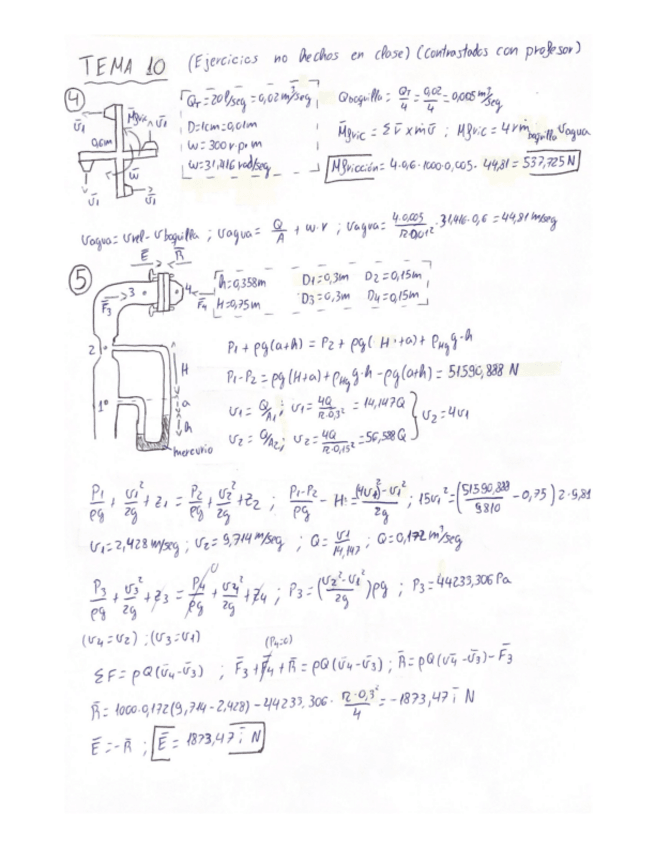 TEMA 10 (Ejercicios no hechos en clase) (Contrastados con profesor)
4
Q_T = 20 l/seg = 0,02 m³/seg
D = 1cm = 0,01m
W = 300 r.p.m
W = 31,416 rad/seg
Qboquilla = Q_T/4 = 0,02/4 = 0,005 m³/seg
M̄fric = Σ r̄ x ṁ v̄ ; Mfric = 4 r ṁboquilla Vagua
Mfricción = 4·0,6·1000·0,005·44,81 = 537,725 N
v̄1 M̄fric v̄1
0,6m
w̄
v̄1 v̄1
vagua = vrel - vboquilla ; vagua = Q/A + w·r ; vagua = 4·0,005/π·0,01² · 31,416·0,6 = 44,81 m/seg
5
Ē R̄
F̄3 3 4 F̄4
h = 0,358m D1 = 0,3m D2 = 0,15m
H = 0,75m D3 = 0,3m D4 = 0,15m
2
H
1 a
h
mercurio
P1 + ρg(a+h) = P2 + ρg(H+a) + ρHg g·h
P1 - P2 = ρg(H+a) + ρHg g·h - ρg(a+h) = 51590,888 N
v1 = Q/A1 ; v1 = 4Q/π·0,3² = 14,147Q
v2 = Q/A2 ; v2 = 4Q/π·0,15² = 56,588Q
v2 = 4v1
P1/ρg + v1²/2g + z1 = P2/ρg + v2²/2g + z2 ; P1-P2/ρg - H = (4v1)² - v1²/2g ; 15v1² = (51590,888/9810 - 0,75) 2·9,81
v1 = 2,428 m/seg ; v2 = 9,714 m/seg ; Q = v1/14,147 ; Q = 0,172 m³/seg
P3/ρg + v3²/2g + z3 = P4/ρg + v4²/2g + z4 ; P3 = (v2² - v1²/2g) ρg ; P3 = 44233,306 Pa
0
(v4 = v2) ; (v3 = v1) (P4=0)
ΣF = ρQ(v̄4 - v̄3) ; F̄3 + F̄4 + R̄ = ρQ(v̄4 - v̄3) ; R̄ = ρQ(v̄4 - v̄3) - F̄3
R̄ = 1000·0,172(9,714 - 2,428) - 44233,306 · π·0,3²/4 = -1873,47 ī N
Ē = -R̄ ; Ē = 1873,47 ī N